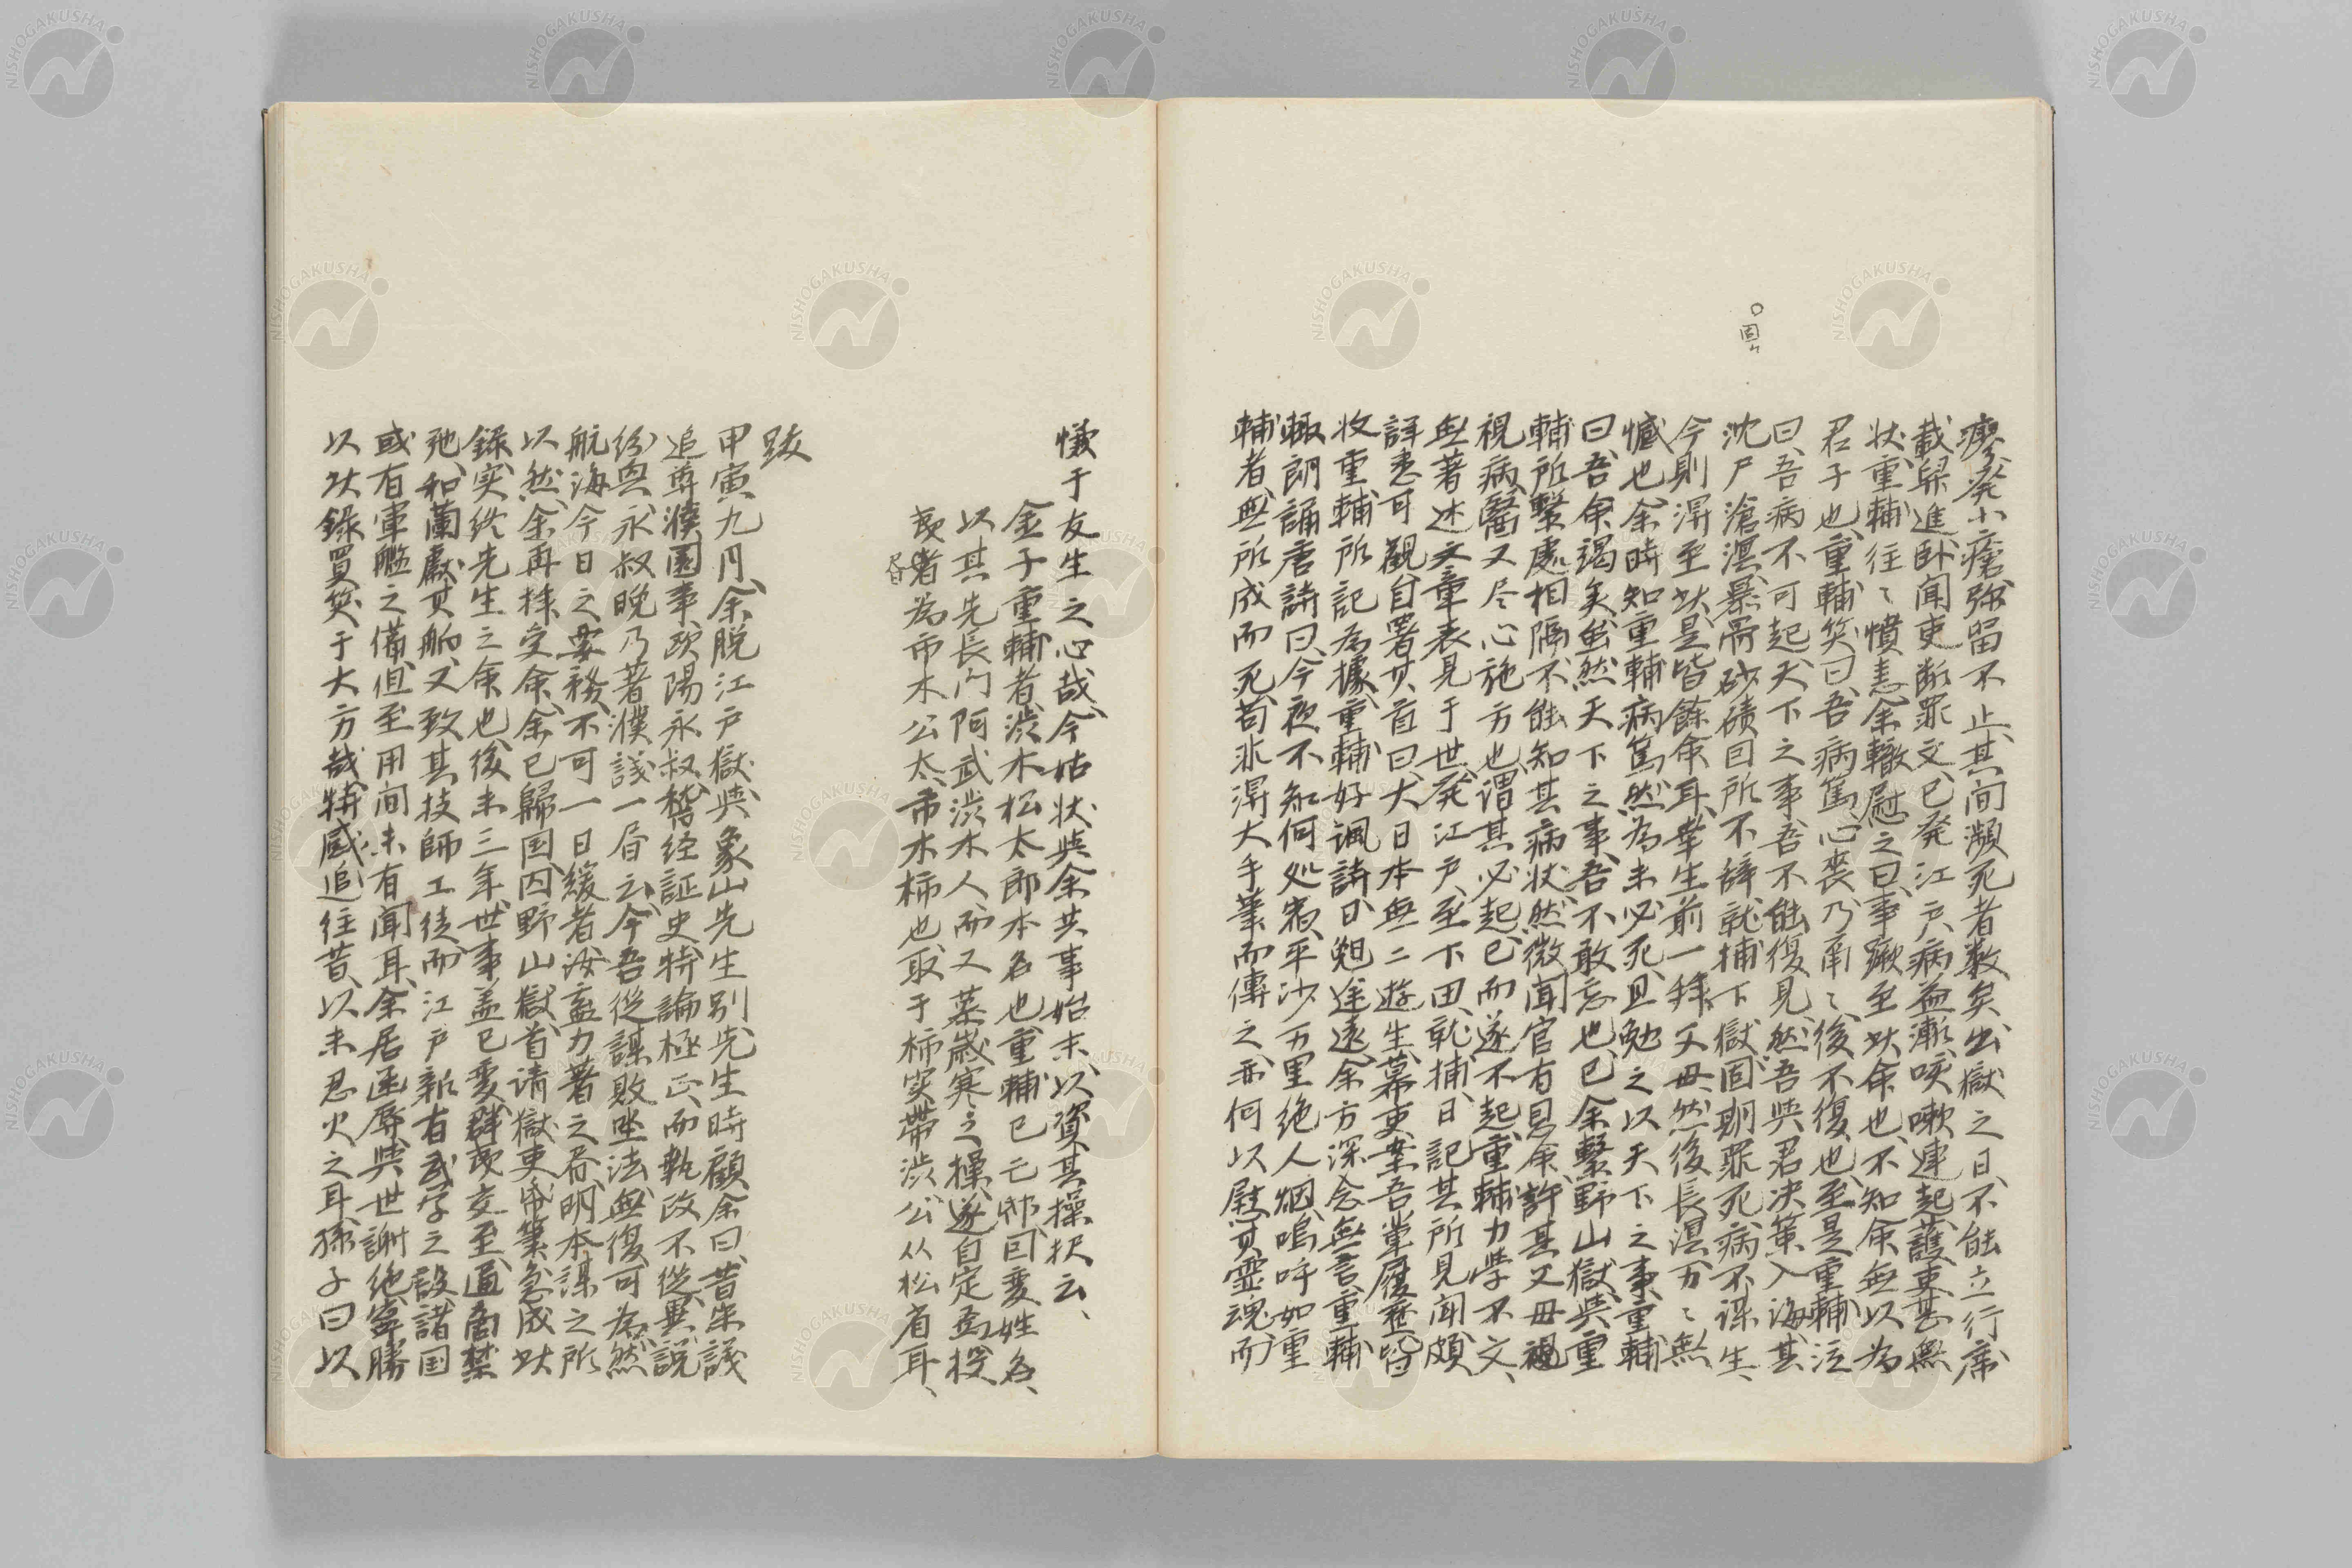 ○固々
療発小瘡弥留不止、其间瀕死者数矣、出獄之日、不能立行、席
載舁進卧、闻吏断罪文、已発江户、病益漸、咳嗽連起、護吏甚無
状、重輔往〻憤恚、余輙慰之曰、事蹶至此命也、不知命無以為
君子也、重輔笑曰、吾病篤心喪、乃甭〻、後不復也、至是重輔泣
曰、吾病不可起、天下之事、吾不能復見、然吾與君决策入海、其
沈尸滄溟、暴骨砂磧、囙所不辞、就捕下獄、固期罪死、病不谋生、
今則淂至此、是皆餘命耳、幸生前一拝父母、然後長瞑、万〻無
憾也、余時知重輔病篤、然為未必死、且勉之以天下之事、重輔
曰、吾命竭矣、虽然天下之事、吾不敢忘也、已余繫野山獄、與重
輔所繫處相隔、不能知其病状、然微闻官有恩命、許其父母視
視病、醫又尽心施方也、谓其必起、已而遂不起、重輔力学不文、
無著述文章表見于世、発江户至下田就捕、日記其所見闻、頗
詳悉可觀、自署其首曰、大日本無二遊生、幕吏案吾輩履歴、皆
收重輔所記為據、重輔好诵詩、日魁途遠、余方深念無言、重輔
輙朗誦唐詩曰、今夜不知何処宿、平沙万里绝人烟、嗚呼如重
輔者、無所成而死、苟非淂大手筆而傳之、亦何以慰其霊魂、而
慊于友生之心哉、今姑状與余共事始末、以資其操択云、
金子重輔者、渋木松太郎本名也、重輔已亡邸、囙変姓名、
以其先長门阿武渋木人、而又慕歳寒之操、遂自定焉、授
或者為市木公太、市木柿也、取于柿实帯渋、公从松省耳、
跋
甲寅九月、余脱江户獄、與象山先生别、先生時顧余曰、昔宋議
追尊濮園事、欧陽永叔、稽经証史、特論極正、而執政不從、異説
纷興、永叔晩乃著濮議一眉云、今吾從謀敗坐法、無復可為、然
航海今日之要務、不可一日緩者、汝盍力著之眉、明本谋之所
以然、余再拝受命、余已歸国、囚野山獄、首请獄吏、需筆急成此
録、实從先生之命也、後未三年、世事盖已変、群或交至、通商禁
弛、和蘭獻其舶、又致其技師工徒、而江户新有武学之設、諸国
或有軍艦之備、但至用间、未有闻耳、余居囹辱、與世謝绝、寧勝
以此録買笑于大方哉、特感追往昔、以未忍火之耳、孫子曰、以